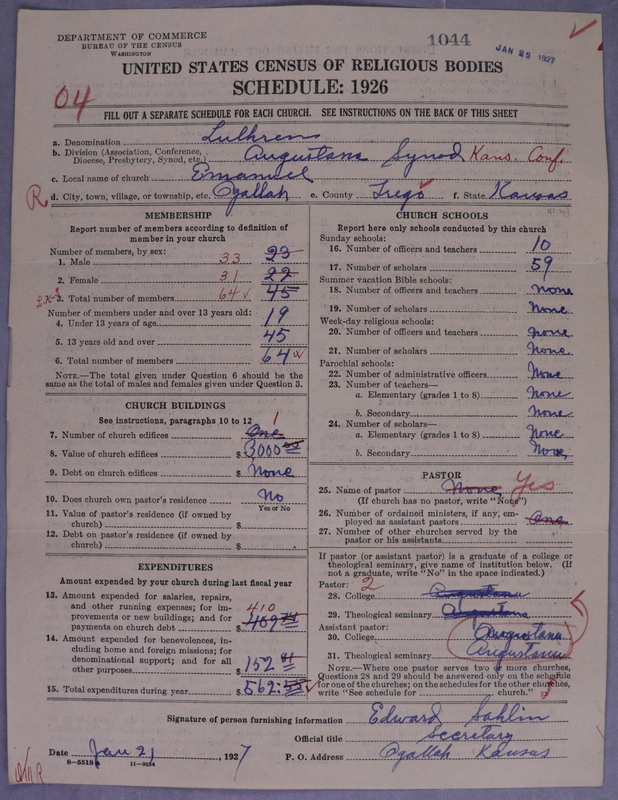 DEPARTMENT OF COMMERCE
BUREAU OF THE CENSUS
WASHINGTON
1044
JAN 25 1927
UNITED STATES CENSUS OF RELIGIOUS BODIES
SCHEDULE: 1926
04
FILL OUT A SEPARATE SCHEDULE FOR EACH CHURCH. SEE INSTRUCTIONS ON THE BACK OF THIS SHEET
a. Denomination Luthren
b. Division (Association, Conference, Diocese, Presbytery, Synod, etc.) Augustana Synod Kans. Conf.
c. Local name of church Emanuel
R d. City, town, village, or township, etc. Ogallah e. County Trego f. State Kansas
MEMBERSHIP
Report number of members according to definition of
member in your church
Number of members, by sex:
1. Male 33 23
2. Female 31 22
3. Total number of members 64 45
Number of members under and over 13 years old:
4. Under 13 years of age 19
5. 13 years old and over 45
6. Total number of members 64
NOTE.—The total given under Question 6 should be
same as the total of males and females given under Question 3.
CHURCH BUILDINGS
See instructions, paragraphs 10 to 12
7. Number of church edifices One 1
8. Value of church edifices $ 3000 00
9. Debt on church edifices $ None
10. Does church own pastor's residence No
Yes or No
11. Value of pastor's residence (if owned by
church) $
12. Debt on pastor's residence (if owned by
church) $
EXPENDITURES
Amount expended by your church during last fiscal year
13. Amount expended for salaries, repairs,
and other running expenses; for im-
provements or new buildings; and for
payments on church debt $ 410
14. Amount expended for benevolences, in-
cluding home and foreign missions; for
denominational support; and for all
other purposes $ 152
15. Total expenditures during year $ 562
CHURCH SCHOOLS
Report here only schools conducted by this church
Sunday schools:
16. Number of officers and teachers 10
17. Number of scholars 59
Summer vacation Bible schools:
18. Number of officers and teachers none
19. Number of scholars None
Week-day religious schools:
20. Number of officers and teachers none
21. Number of scholars None
Parochial schools:
22. Number of administrative officers None
23. Number of teachers—
a. Elementary (grades 1 to 8) None
b. Secondary None
24. Number of scholars—
a. Elementary (grades 1 to 8) None
b. Secondary None
PASTOR
25. Name of pastor None Yes
(If church has no pastor, write "None")
26. Number of ordained ministers, if any, em-
ployed as assistant pastors One
27. Number of other churches served by the
pastor or his assistants
If pastor (or assistant pastor) is a graduate of a college or
theological seminary, give name of institution below. (If
not a graduate, write "No" in the space indicated.)
Pastor: 2
28. College Augustana
29. Theological seminary Augustana
Assistant pastor:
30. College Augustana
31. Theological seminary Augustana
NOTE.—Where one pastor serves two or more churches,
Questions 28 and 29 should be answered only on the schedule
for one of the churches; on the schedules for the other churches,
write "See schedule for church."
Signature of person furnishing information Edward Sahlin
Official title Secretary
Date Jan 21, 1927 P. O. Address Ogallah Kansas
8—5518 11—9054